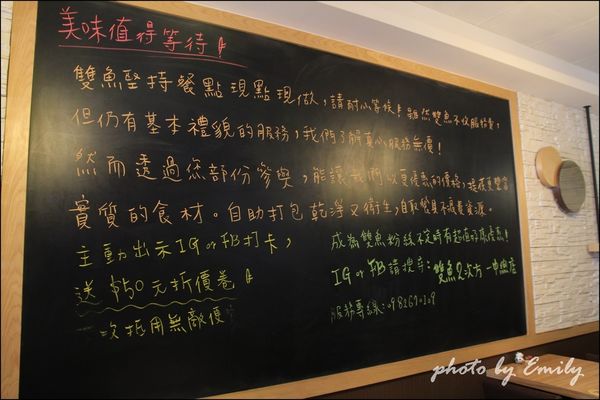 美味值得等待!
雙魚堅持餐點現點現做,請耐心等候!雖然雙魚不收服務費,
但仍有基本禮貌的服務,我們了解真心服務無價!
然而透過您部份參與,能讓我們以更優惠的價格,提供更豐富
實質的食材。自助打包乾淨又衛生,自取餐具不浪費資源。
主動出示IG or FB打卡,
送$50元折價卷!
次抵用無敵優
成為雙魚粉絲不定時有超值好康優惠!
IG or FB請搜尋:雙魚2次方 一中店
服務專線:
photo by Emily